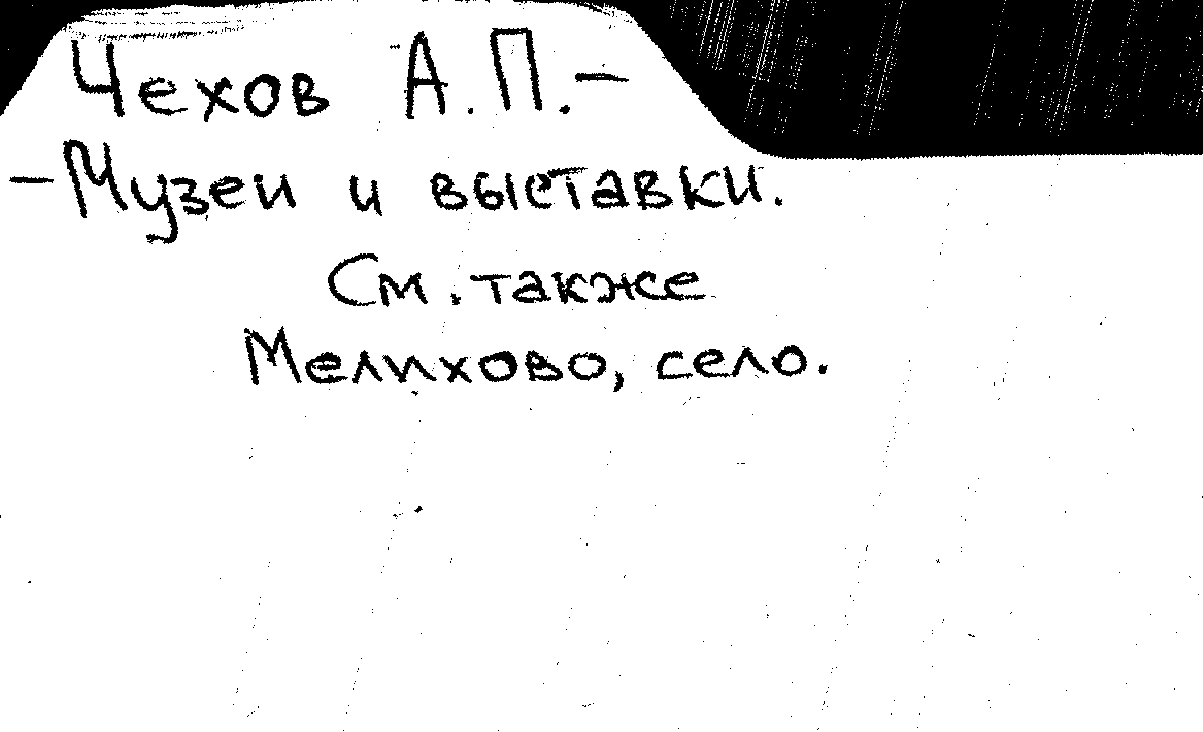 Чехов А.П.—
—Музеи и выставки.
См. также
Мелихово, село.